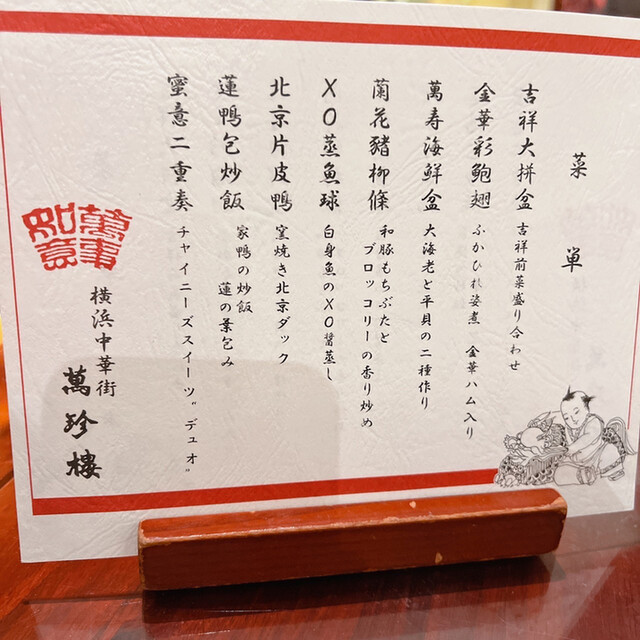 菜単
吉祥大拼盆
吉祥前菜盛り合わせ
金華彩鮑翅
ふかひれ姿煮 金華ハム入り
萬寿海鮮盆
大海老と平貝の二種作り
蘭花豬柳條
和豚もちぶたと
ブロッコリーの香り炒め
XO蒸魚球
白身魚のXO醤蒸し
北京片皮鴨
窯焼き北京ダック
蓮鴨包炒飯
家鴨の炒飯
蓮の葉包み
蜜意二重奏
チャイニーズスイーツ"デュオ"
萬事如意
横浜中華街
萬珍樓